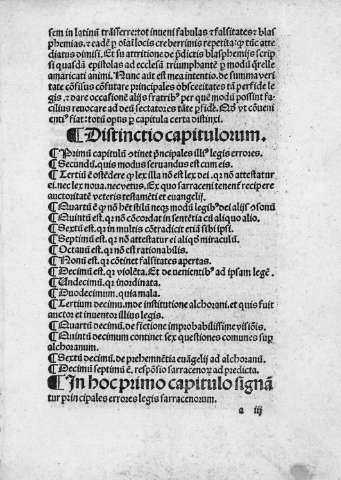 sem in latinũ trãsferre: tot inueni fabulas ⁊ falsitates ⁊ blas
phemias. ⁊ eadẽ ꝑ oĩa loca creberrimis repetita: ꝙ tũc atte
diatus dimisi. Et su attritione de p̃dictis blasphemijs scrip
si quasdã epistolas ad ecclesiã triumphantẽ ꝑ modũ q̃rele
amaricati animi. Nunc aũt est mea intentio. de summa veri
tate cõfisus cõfutare principales obscenitates tã perfide le
gis. ⁊ dare occasionẽ alijs fratribꝰ per quẽ modũ possint fa
cilius reuocare ad deũ sectatores tãte ꝑfidie. Et vt cõueni
entiꝰ fiat: totũ opus ꝑ capitula certa distinxi.
¶ Distinctio capitulorum.
¶ Primũ capitulũ ↄtinet p̃ncipales illiꝰ legis errores.
¶ Secundũ. quis modus seruandus est cum eis.
¶ Tertiũ ẽ ostẽdere ꝙ lex illa nõ est lex dei. qꝛ nõ attestatur
ei. nec lex noua. nec vetus. Ex quo sarraceni tenent̃ recipere
auctoritatẽ veteris testamẽti et euangelij.
¶ Quartũ ẽ ꝙ nõ hẽt stilũ neqꝫ modũ legibꝰ dei alijs ↄsonũ
¶ Quintũ est. qꝛ nõ cõcordat in sentẽtia cũ aliquo alio.
¶ Sextũ est. qꝛ in multis cõtradicit etiã sibi ipsi.
¶ Septimũ est. qꝛ nõ attestatur ei aliqḋ miraculũ.
¶ Octauũ est. qꝛ nõ est rationabilis.
¶ Nonũ est. qꝛ cõtinet falsitates apertas.
¶ Decimũ est. qꝛ violẽta. Et de venientibꝰ ad ipsam legẽ.
¶ Undecimũ. qꝛ inordinata.
¶ Duodecimum. quia mala.
¶ Tertium decimu. m̃ de institutione alchorani. et quis fuit
auctor et inuentor illius legis.
¶ Quartũ decimũ. de fictione improbabilissime visiõis.
¶ Quintũ decimum continet sex questiones comunes sup̃
alchoranum.
¶ Sextũ decimũ. de prehemnẽtia euãgelij ad alchoranũ.
¶ Decimũ septimũ ẽ. respõsio sarracenoꝝ ad predicta.
¶ In hoc primo capitulo signã
tur principales errores legis sarracenorum.
a iij